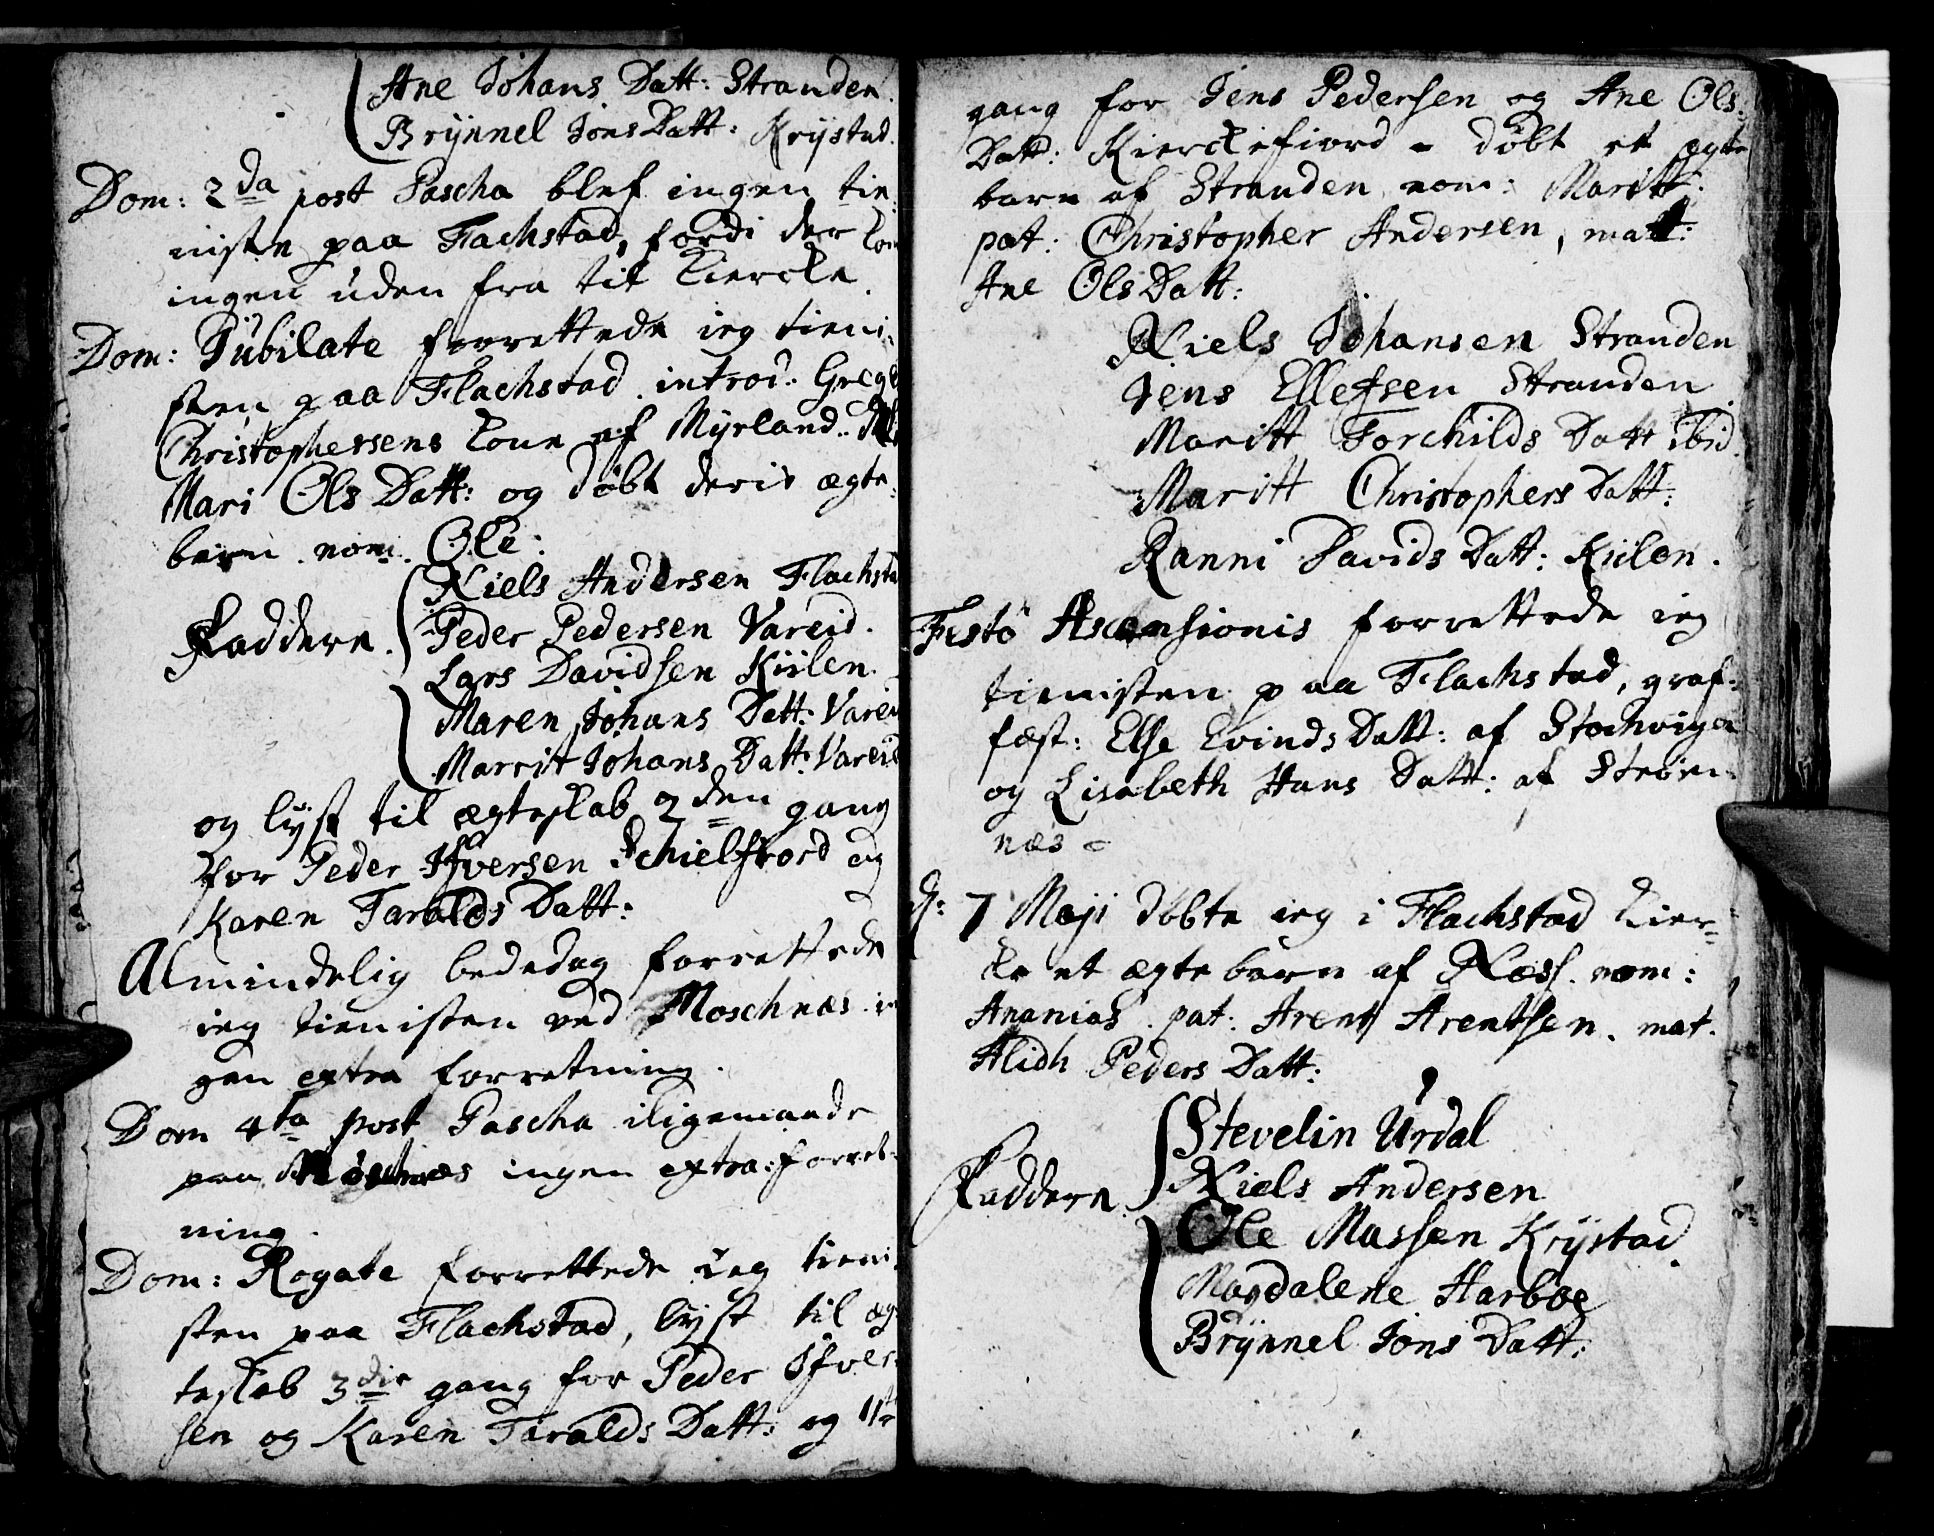 Ane Johans Datt: Stranden.
Brÿnnel Jons Datt: Krÿstad.
Dom: 2da post Pascha blef ingen tie-
niste paa Fachstad, fordi der kom
ingen uden fra til kiercke.
Dom: Jubilate forrettede ieg tieni-
sten paa Flachstad. introd: Greg
Christophersens kone af Myrland.
Mari Ols Datt: og døbt deris ægte-
barn. nom. Ole:
Niels Andersen Flachsta
Faddere. Peder Pedersen Vareid.
Lars Davidsen Kiilen.
Maren Johans Datt: Vareid
Marrit Johans Datt: Vareid
og lyst til ægteskab 2den gang
for Peder Ifversen Schielfiord og
Karen Taralds Datt:
Almindelig bededag forrettede
ieg tienisten ved Moschnæs. in
gen extra forretning.
Dom 4ta post Pascha iligemaade
paa Moschnæs ingen extra: forret-
ning.
Dom: Rogate forrettede ieg tieni-
sten paa Flachstad, lyst til æg-
teskab 3die gang for Peder Ifver-
sen og Karen Taralds Datt: og 1ste
gang for Jens Pedersen og Ane Ols-
Datt: Kierckefiord - døbt et ægte
barn af Stranden nom: Maritt:
pat: Christopher Andersen, matt:
Ane Ols Datt:
Niels Johansen Stranden
Jens Ellefsen Stranden
Maritt Torchilds Datt ibid.
Maritt Christophers Datt:
Ranni Davids Datt: Kiilen.
Festo Ascensionis forrettede ieg
tienisten paa Flachstad, graf-
fæst: Else Evinds Datt: af Stochvigen
og Lisabeth Hans Datt: af Strøm-
næs -
d: 7 Maji døbte ieg i Flachstad kier-
ke et ægte barn af Næss. nom:
Ananias. pat: Arent Arentsen. mat.
Alidh Peders Datt:
Stevelin Urdal
Faddere. Niels Andersen
Ole Massen Krÿstad.
Magdalene Harboe
Brÿnnel Jons Datt: